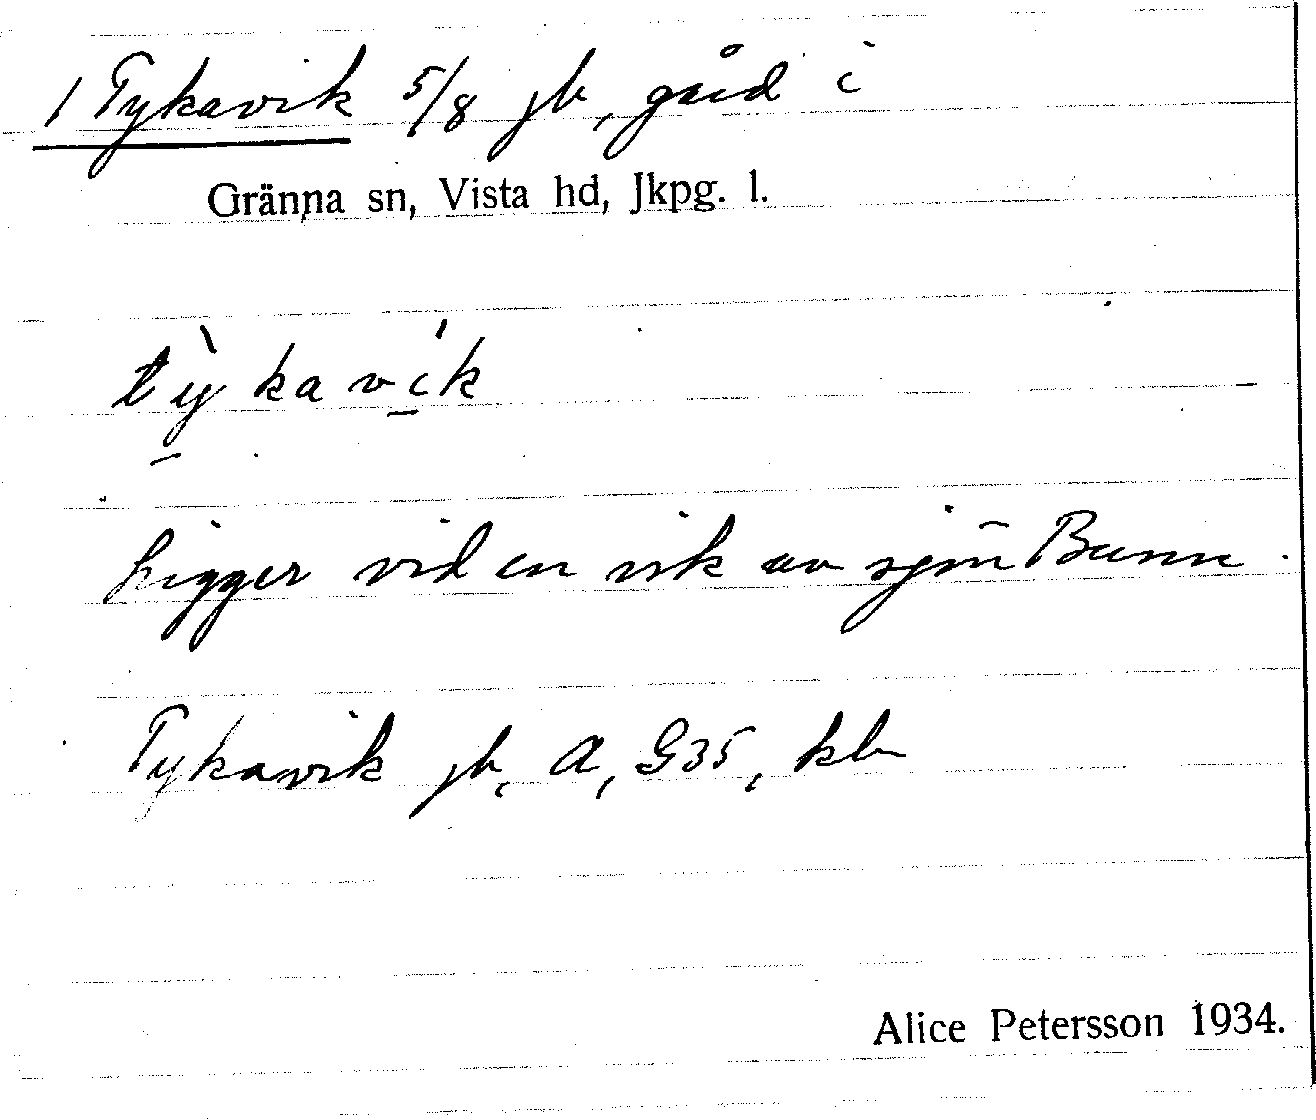 1 Tykavik 5/8 jb, gård i
Gränna sn, Vista hd, Jkpg. l.
tỳkavík
Ligger vid en vik av sjön Bunn.
Tykavik jb, A, G35, kb
Alice Petersson 1934.